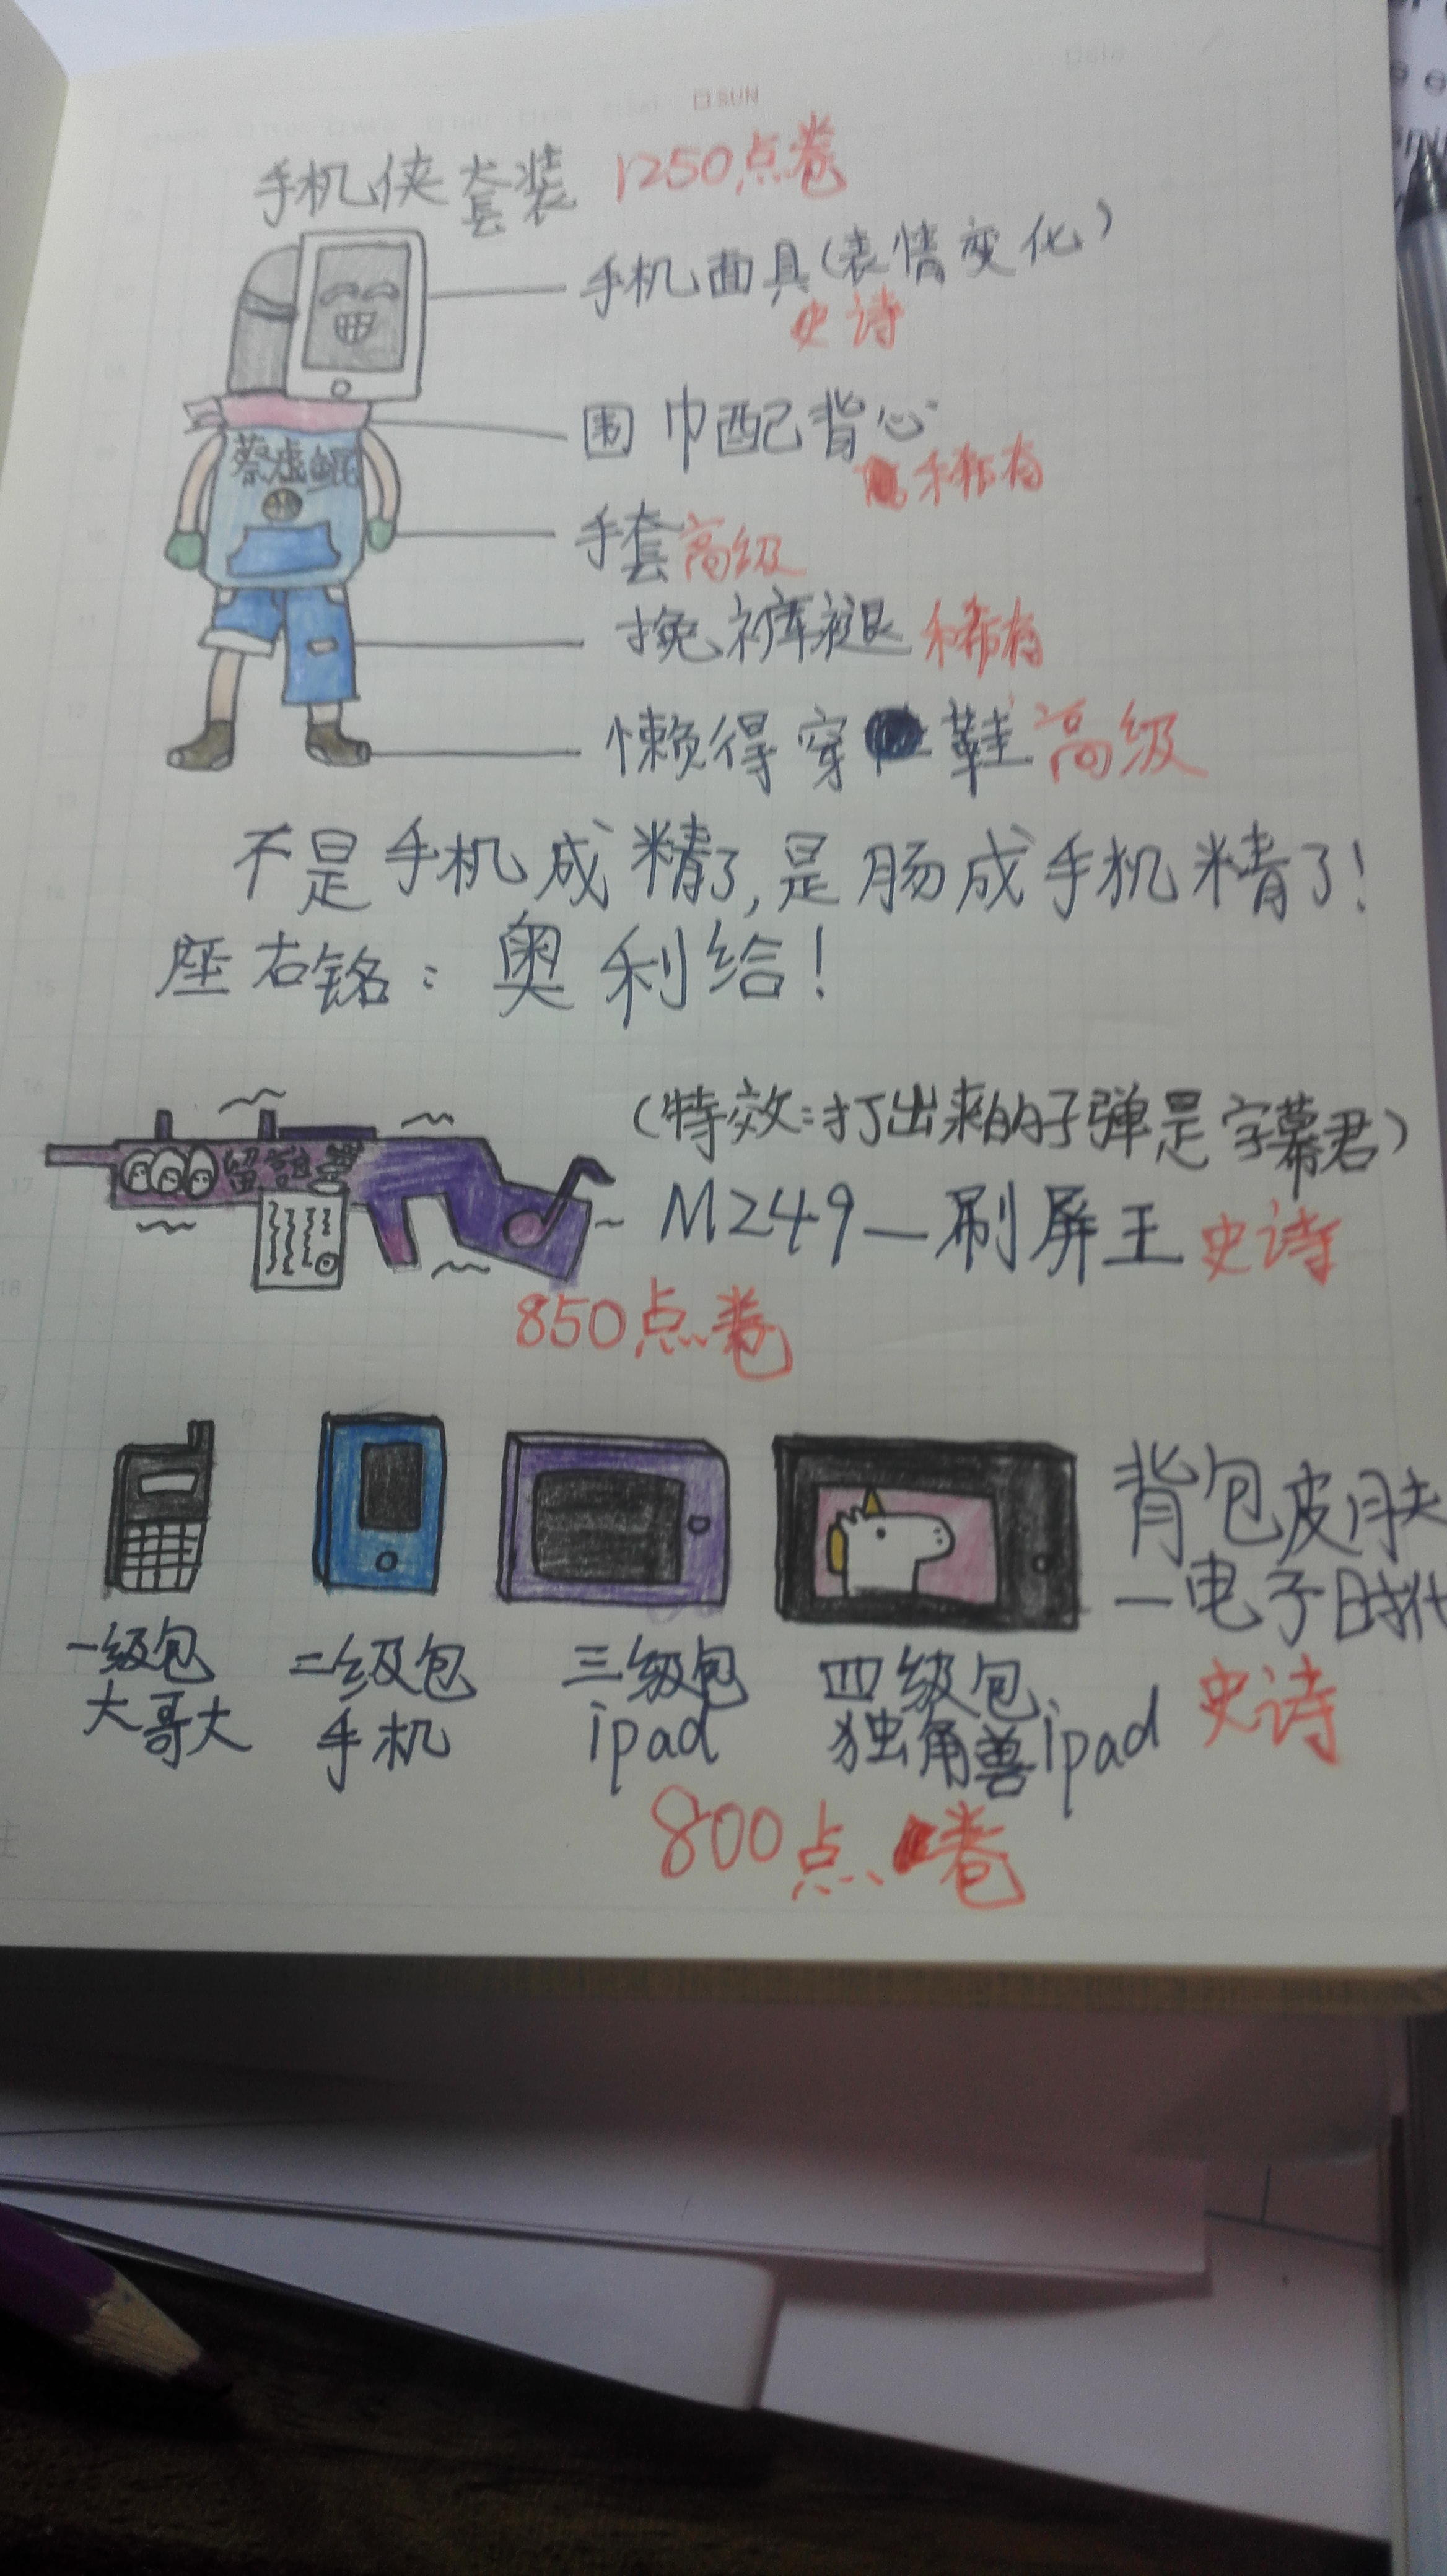 SUN
手机侠套装 1250点卷
手机面具(表情变化)
史诗
围巾配背心
稀有
蔡虚鲲
手套 高级
挽裤褪 稀有
懒得穿鞋 高级
不是手机成精了,是肠成手机精了!
座右铭:奥利给!
(特效:打出来的子弹是字幕君)
留言
M249—刷屏王 史诗
850点卷
背包皮肤
—电子时代
史诗
一级包
大哥大
二级包
手机
三级包
ipad
四级包
独角兽ipad
800点卷